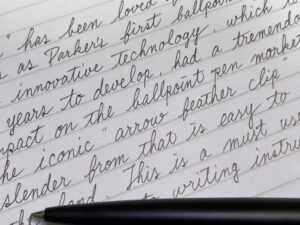 " has been loved
as Parker's first ballpoin
innovative technology, which to
years to develop, had a tremendo
mpact on the ballpoint pen market
he iconic "arrow feather clip"
slender from that is easy to
hand. This is a must
writing instru